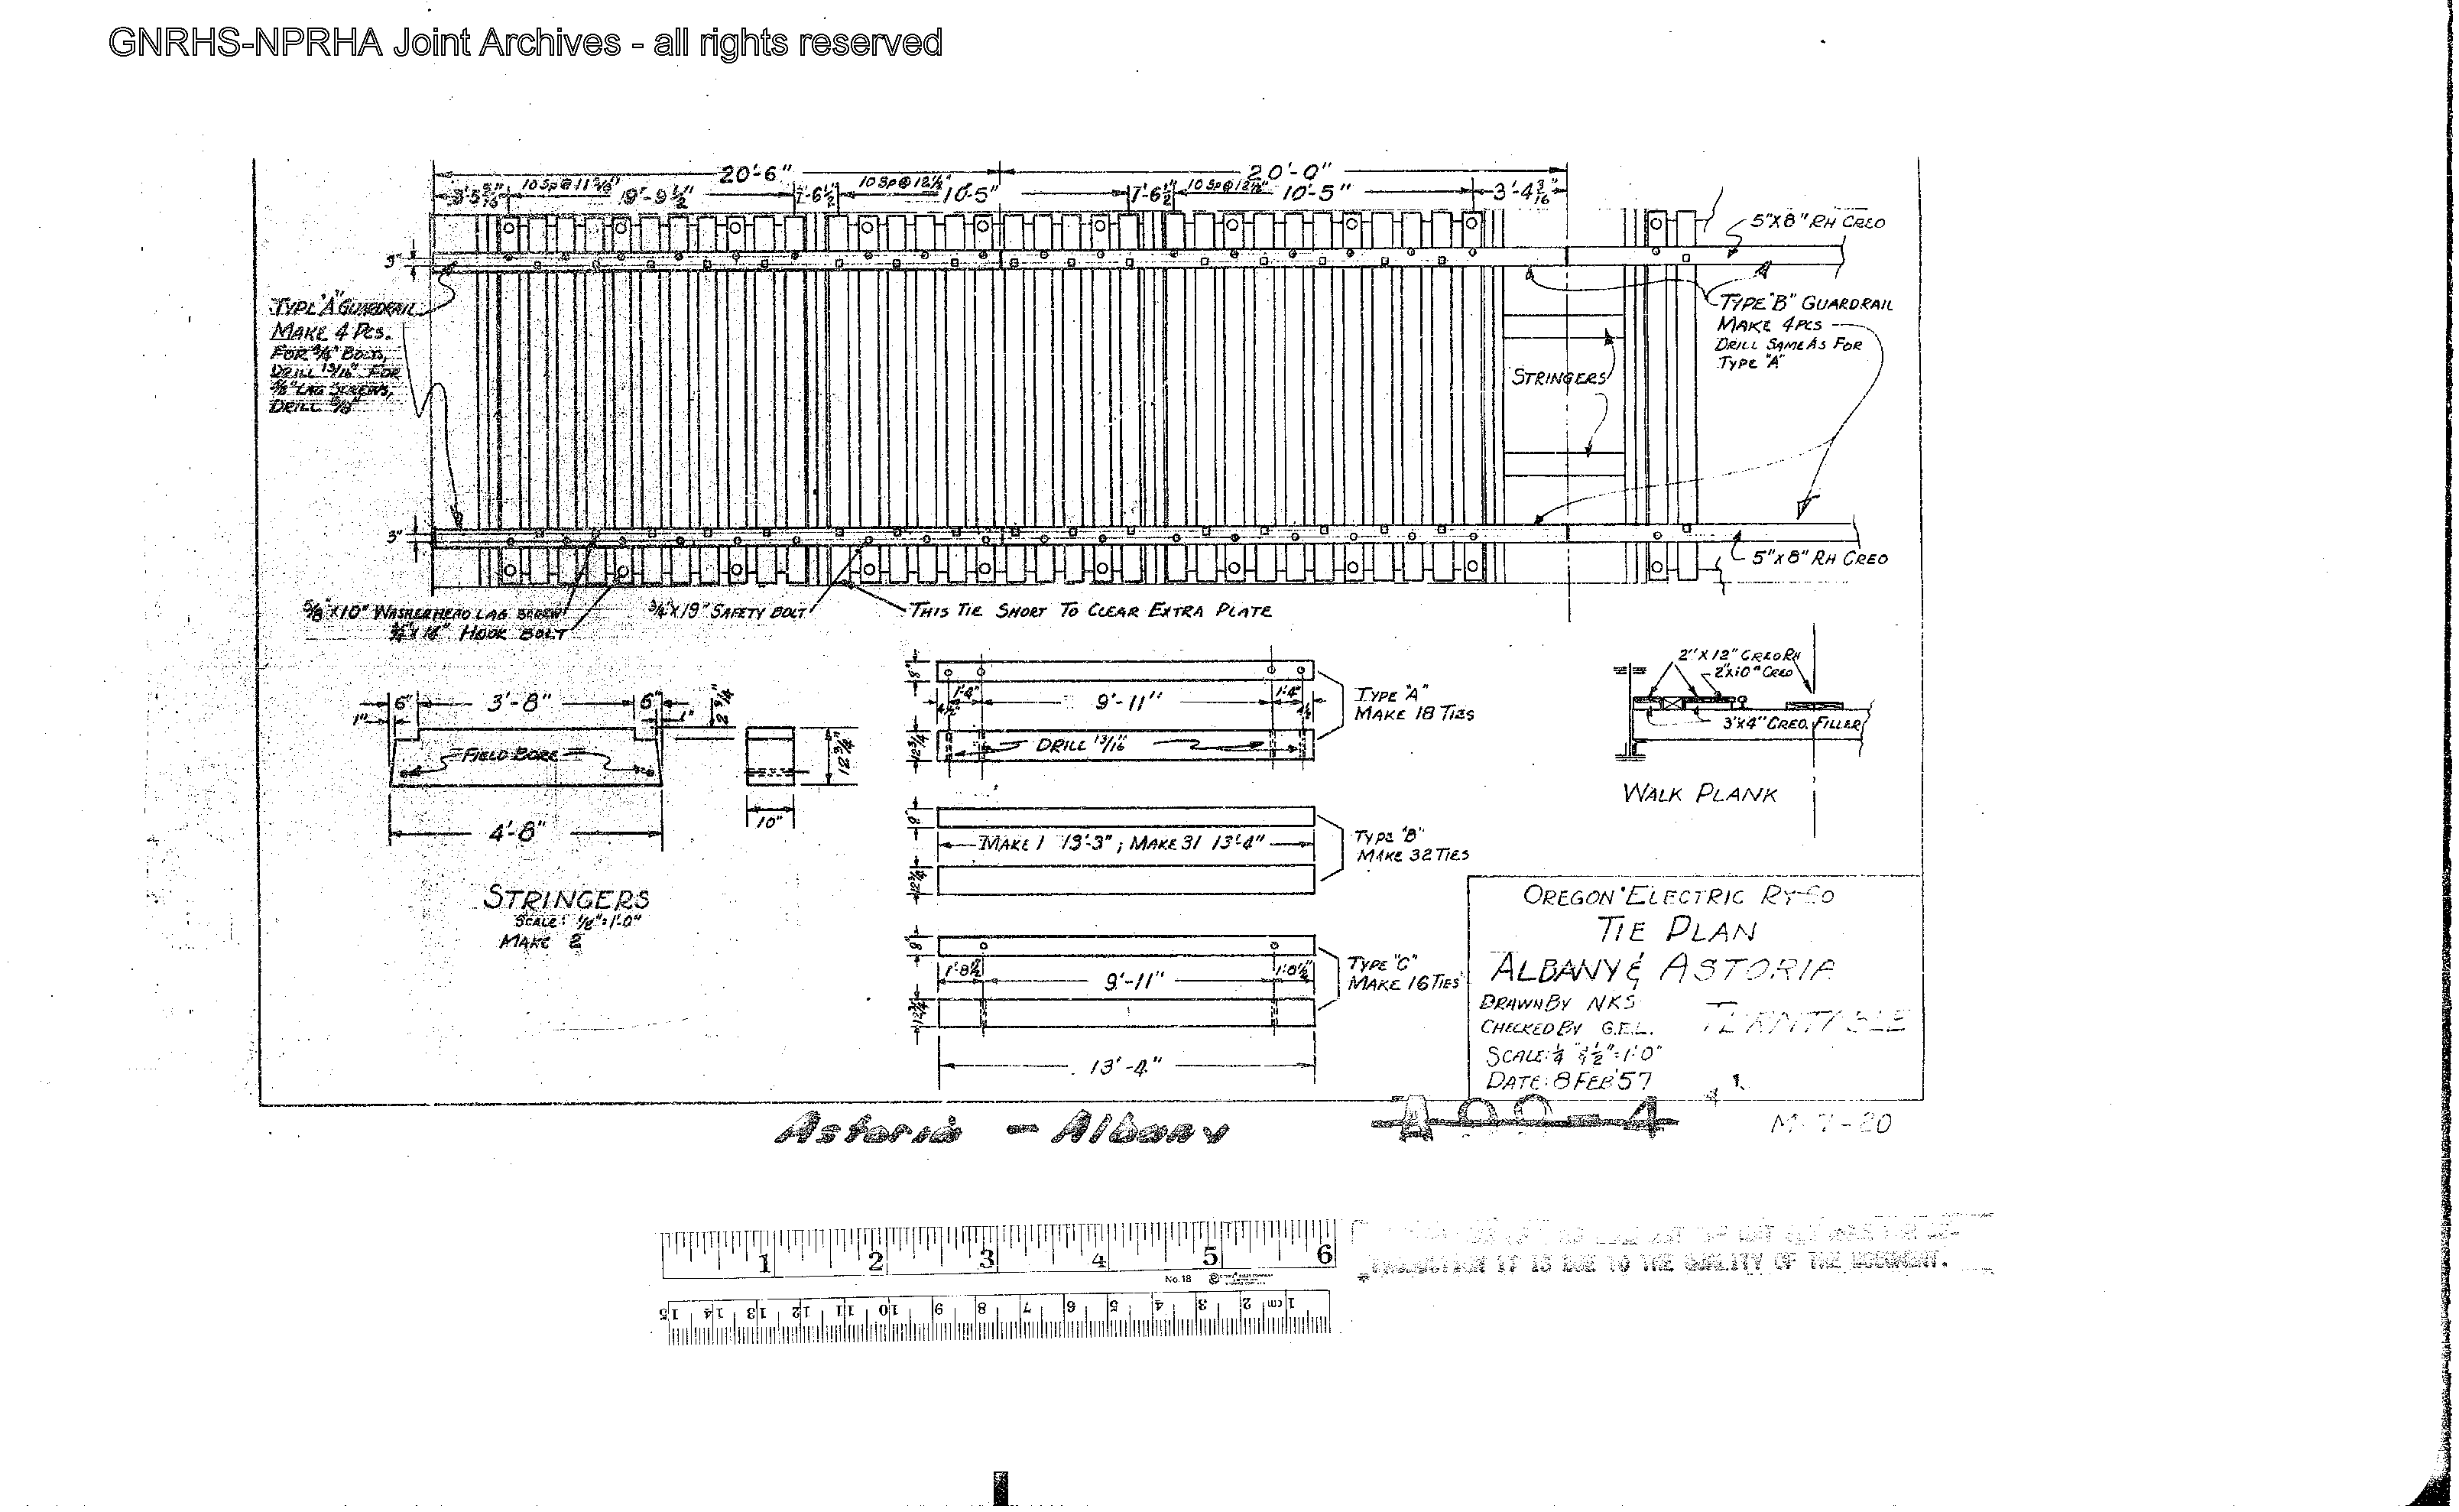 GNRHS-NPRHA Joint Archives - all rights reserved
20'-6"
20'-0"
10 Sp @ 12½"
10 Sp @ 12½"
9'-9½"
1'-6½"
10'-5"
1'-6½"
10'-5"
3'-4 3/16"
5"X8" RH CREO
3"
TYPE "A" GUARDRAIL
MAKE 4 PCS.
FOR ¾" BOLTS,
DRILL 13/16" FOR
5/8" LAG SCREWS,
DRILL 5/8"
TYPE "B" GUARDRAIL
MAKE 4 PCS
DRILL SAME AS FOR
TYPE "A"
STRINGERS
3"
5"X8" RH CREO
5/8"X10" WASHERHEAD LAG SCREW
HOOK BOLT
¾"X19" SAFETY BOLT
THIS TIE SHORT TO CLEAR EXTRA PLATE
6"
3'-8"
6"
1"
1"
2¾"
FIELD BORE
12¾"
4'-8"
10"
STRINGERS
SCALE: ½"=1'-0"
MAKE 2
8"
1'-4"
9'-11"
1'-4"
4½
4½
12¾"
DRILL 13/16"
TYPE "A"
MAKE 18 TIES
8"
MAKE 1 13'-3"; MAKE 31 13'-4"
12¾"
TYPE "B"
MAKE 32 TIES
8"
1'-8½"
9'-11"
1'-8½"
12¾"
13'-4"
TYPE "C"
MAKE 16 TIES
2"X12" CREO RH
2"X10" CREO
3"X4" CREO. FILLER
WALK PLANK
OREGON ELECTRIC RY CO
TIE PLAN
ALBANY & ASTORIA
TURNTABLE
DRAWN BY NKS
CHECKED BY G.E.L.
SCALE: ¼" & ½"=1'-0"
DATE: 8 FEB '57
Astoria - Albany
M-7-20
1 2 3 4 5 6
No. 18
15 14 13 12 11 10 9 8 7 6 5 4 3 2 cm 1
IT IS DUE TO THE QUALITY OF THE DOCUMENT.